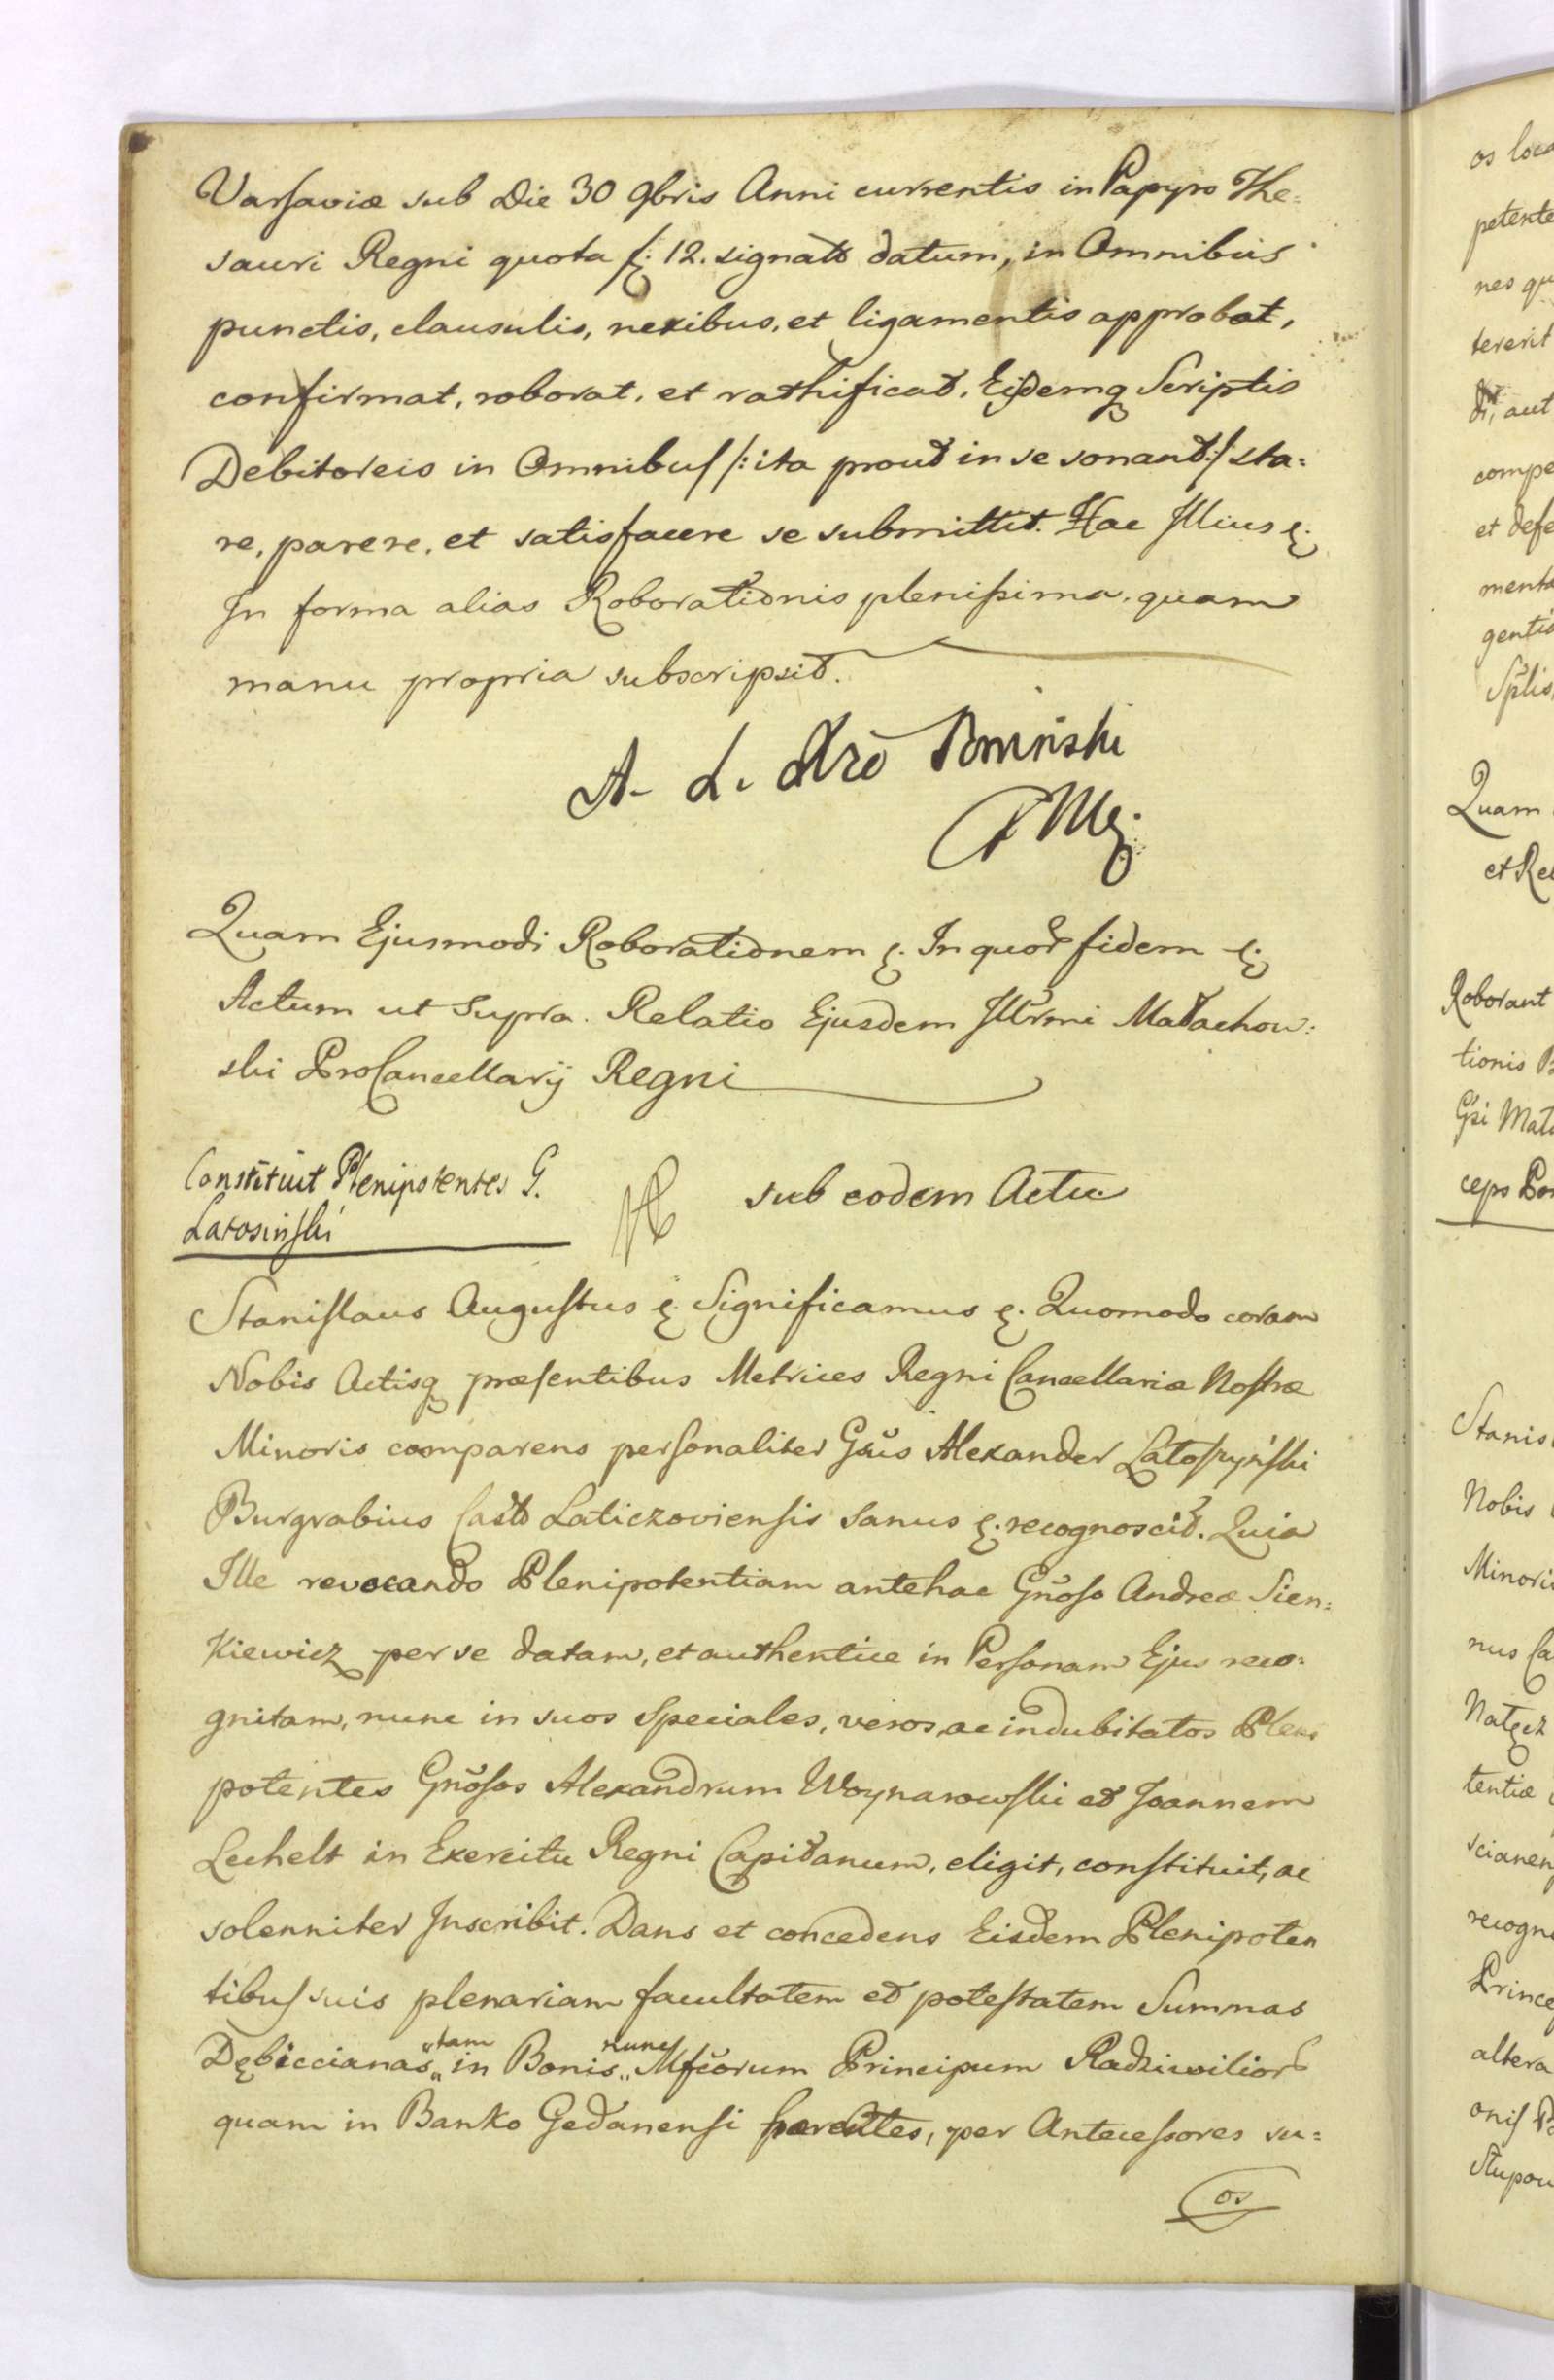 Varsaviæ sub Die 30 9bris Anni currentis in Papyro The=
sauri Regni quota f: 12. signato datum, in Omnibus
punctis, clausulis, nexibus, et ligamentis approbat,
confirmat, roborat, et rathificat. Eijdemq Scriptis
Debitoreis in Omnibus /: ita prout in se sonant :/ sta=
re, parere, et satisfacere se submittit. Hac Illius &.
In forma alias Roborationis plenissima. quam
manu propria subscripsit.
A. L. Poniński
Quam Ejusmodi Roborationem &. In quor fidem &.
Actum ut Supra. Relatio Ejusdem Illrmi Małachow:
ski ProCancellarij Regni
Constituit Plenipotentes G.
Latosinski
sub eodem Actu
Stanislaus Augustus &. Significamus &. Quomodo coram
Nobis Actisq præsentibus Metrices Regni Cancellariæ Nostræ
Minoris comparens personaliter Gsus Alexander Latoszyński
Burgrabius Castr Laticzoviensis sanus &. recognoscit. Quia
Ille revocando Plenipotentiam antehac Gnoso Andreæ Sien=
Kiewicz per se datam, et authentice in Personam Ejus reco=
gnitam, nunc in suos Speciales, veros, ac indubitatos Pleni
potentes Gnosos Alexandrum Woynarowski et Joannem
Lechelt in Exercitu Regni Capitanum, eligit, constituit, ac
solenniter Inscribit. Dans et concedens Eisdem Plenipoten
tibus suis plenariam facultatem et potestatem Summas
Dębiccianas „tam„ in Bonis „nunc„ Mfcorum Principum Radziwilior
quam in Banko Gedanensi hærentes, per Antecessores su=
os
os loca
petente
nes qu
tererit
aut
compe
et defe
menta
gentia
Sptis
Quam
et Rel
Roborant
tionis
Gsi Mat
ceps
Stanis
Nobis
Minoris
nus Ca
Natęcz
tentiæ
scianen
recogn
Princep
altera
onis
Stupow